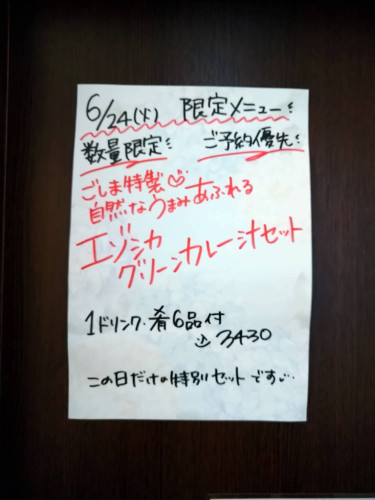 6/24(火) 限定メニュー
数量限定 ご予約優先
ごしま特製
自然なうまみあふれる
エゾシカ
グリーンカレー汁セット
1ドリンク.肴6品付
3430
この日だけの特別セットです